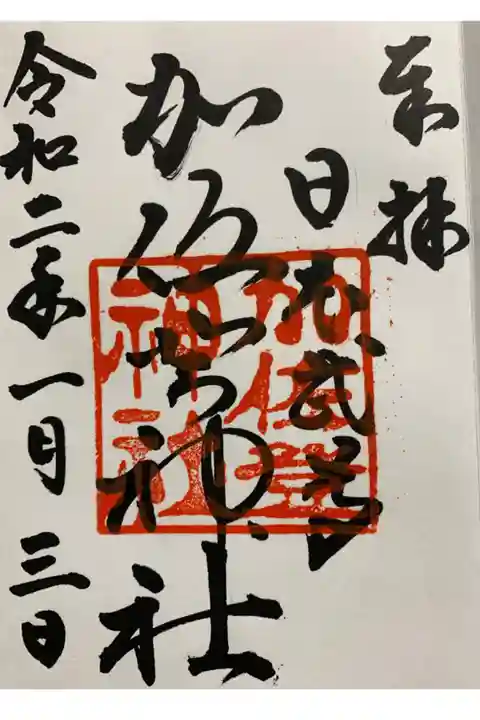 奉拝
日本武尊
加佐登神社
令和二年一月三日
加佐登
神社